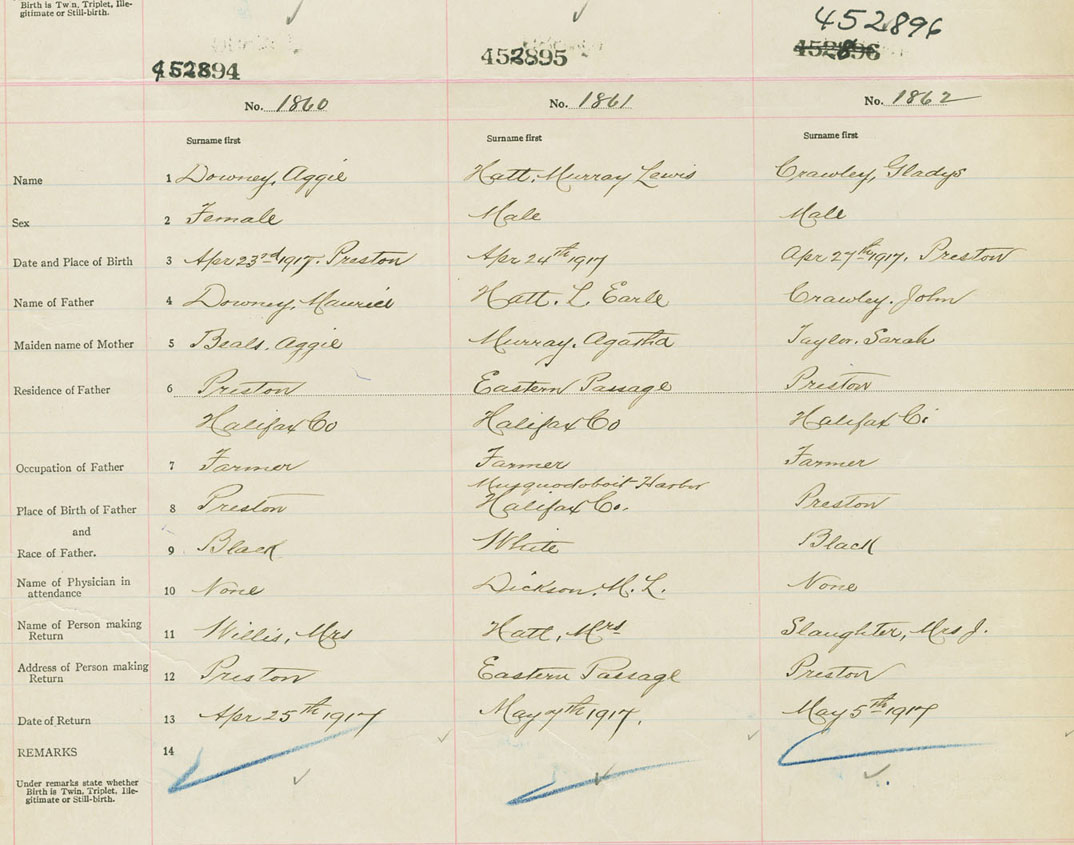 Birth is Twin, Triplet, Ille-
gitimate or Still-birth.
452896
452894 452895 452896
No. 1860 No. 1861 No. 1862
Surname first Surname first Surname first
Name 1 Downey, Aggie Hatt, Murray Lewis Crawley, Gladys
Sex 2 Female Male Male
Date and Place of Birth 3 Apr 23rd 1917. Preston Apr 24th 1917 Apr 27th 1917. Preston
Name of Father 4 Downey, Maurice Hatt. L. Earle Crawley. John
Maiden name of Mother 5 Beals. Aggie Murray. Agatha Taylor. Sarah
Residence of Father 6 Preston Eastern Passage Preston
Halifax Co Halifax Co Halifax Co
Occupation of Father 7 Farmer Farmer Farmer
Musquodoboit Harbor
Place of Birth of Father 8 Preston Halifax Co. Preston
and
Race of Father. 9 Black White Black
Name of Physician in
attendance 10 None Dickson. M. L. None
Name of Person making
Return 11 Willis, Mrs Hatt, Mrs Slaughter, Mrs J.
Address of Person making
Return 12 Preston Eastern Passage Preston
Date of Return 13 Apr 25th 1917 May 7th 1917. May 5th 1917
REMARKS 14
Under remarks state whether
Birth is Twin, Triplet, Ille-
gitimate or Still-birth.